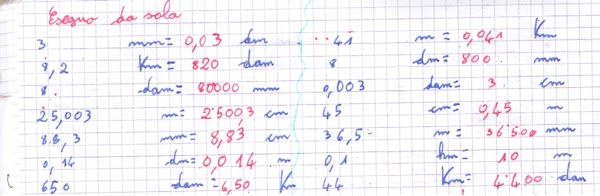 Eseguo da sola
3 mm = 0,03 dm 41 m = 0,041 Km
8,2 Km = 820 dam 8 dm = 800 mm
8 dam = 80000 mm 0,003 dam = 3 cm
25,003 m = 2500,3 cm 45 cm = 0,45 m
88,3 mm = 8,83 cm 36,5 m = 36500 mm
0,14 dm = 0,014 m 0,1 hm = 10 m
650 dam = 6,50 Km 44 Km = 4400 dam